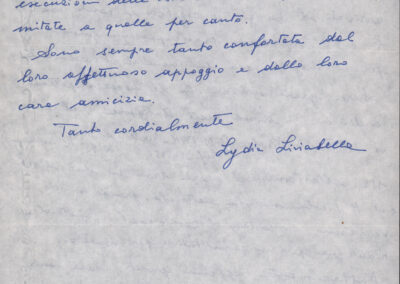 esecuzioni delle
mitate a quelle per canto.
Sono sempre tanto confortata dal
loro affettuoso appoggio e dalla loro
cara amicizia.
Tanto cordialmente
Lydia Liviabella